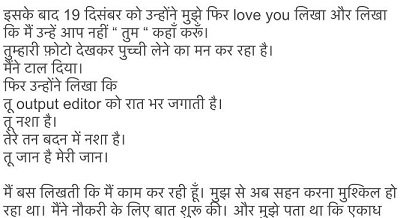 इसके बाद 19 दिसंबर को उन्होंने मुझे फिर love you लिखा और लिखा
कि मैं उन्हें आप नहीं “ तुम “ कहाँ करूँ।
तुम्हारी फ़ोटो देखकर पुच्ची लेने का मन कर रहा है।
मैंने टाल दिया।
फिर उन्होंने लिखा कि
तू output editor को रात भर जगाती है।
तू नशा है।
तेरे तन बदन में नशा है।
तू जान है मेरी जान।
मैं बस लिखती कि मैं काम कर रही हूँ। मुझ से अब सहन करना मुश्किल हो
रहा था। मैंने नौकरी के लिए बात शुरू की। और मुझे पता था कि एकाध